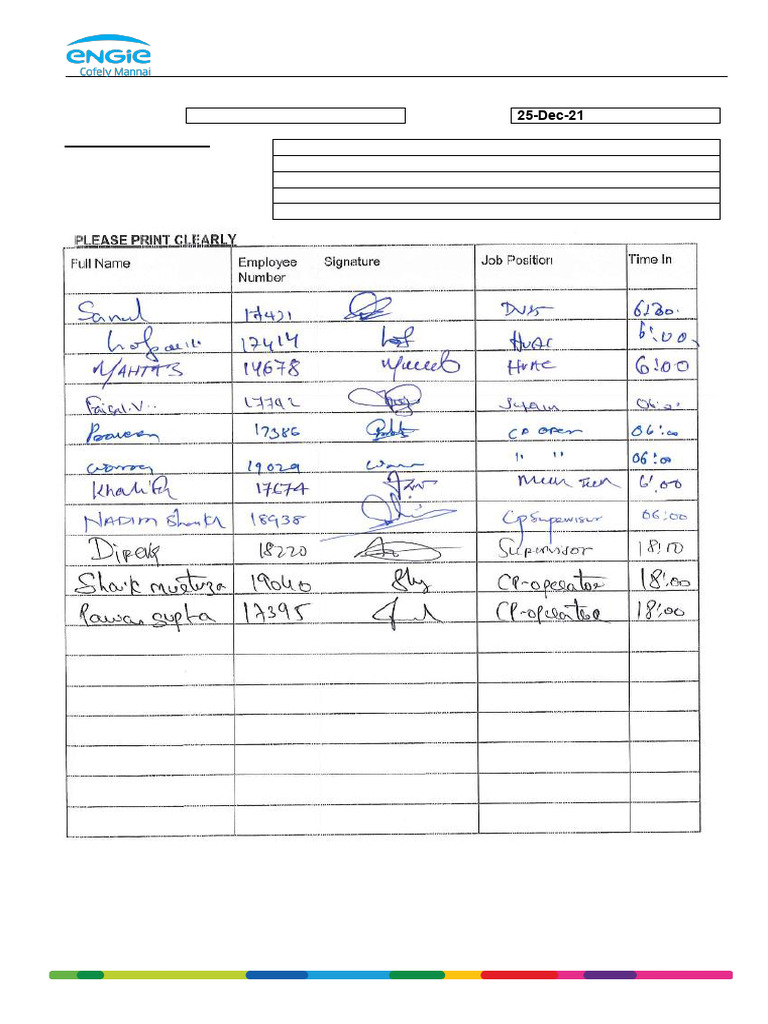 ENGIE
Cofely Mannai
25-Dec-21
PLEASE PRINT CLEARLY
Full Name Employee Number Signature Job Position Time In
Sanul 17421 6:30.
17414 HVAC 6:00
MAHTAB 14678 HVAC 6:00
Faisal.V.. 17792
17386 CP open 06:00
19029 " " 06:00
Khalifa 17674 6:00
NADIM Shaikh 18938 Cp Supervisor 06:00
Dipeng 18220 Supervisor 18:10
Shaik murtuza 19040 CP-operator 18:00
Pawan gupta 17395 CP-operator 18:00